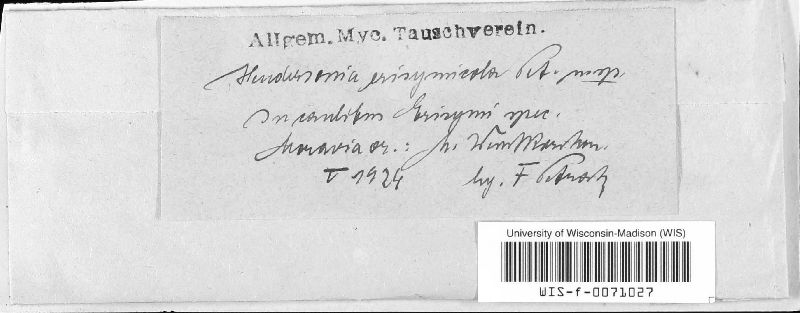 Allgem. Myc. Tauschverein.
Hendersonia erisymicola Pet. n.sp.
In caulibus Erisymi spec.
Moravia or.: M. Weisskirchen.
V 1924 lg. F Petrak
University of Wisconsin-Madison (WIS)
WIS-f-0071027